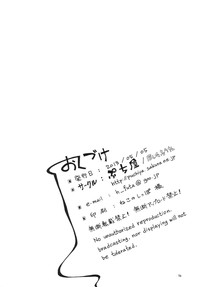 おくづけ
* 発行日: 2013/05/05
* サークル:
* e-mail: h_futa@goo.jp
* 印刷: ねこのしっぽ 様
無断転載禁止! 無断アップロード禁止!
No unauthorized reproduction,
broadcasting, nor displaying will not
be tolerated.